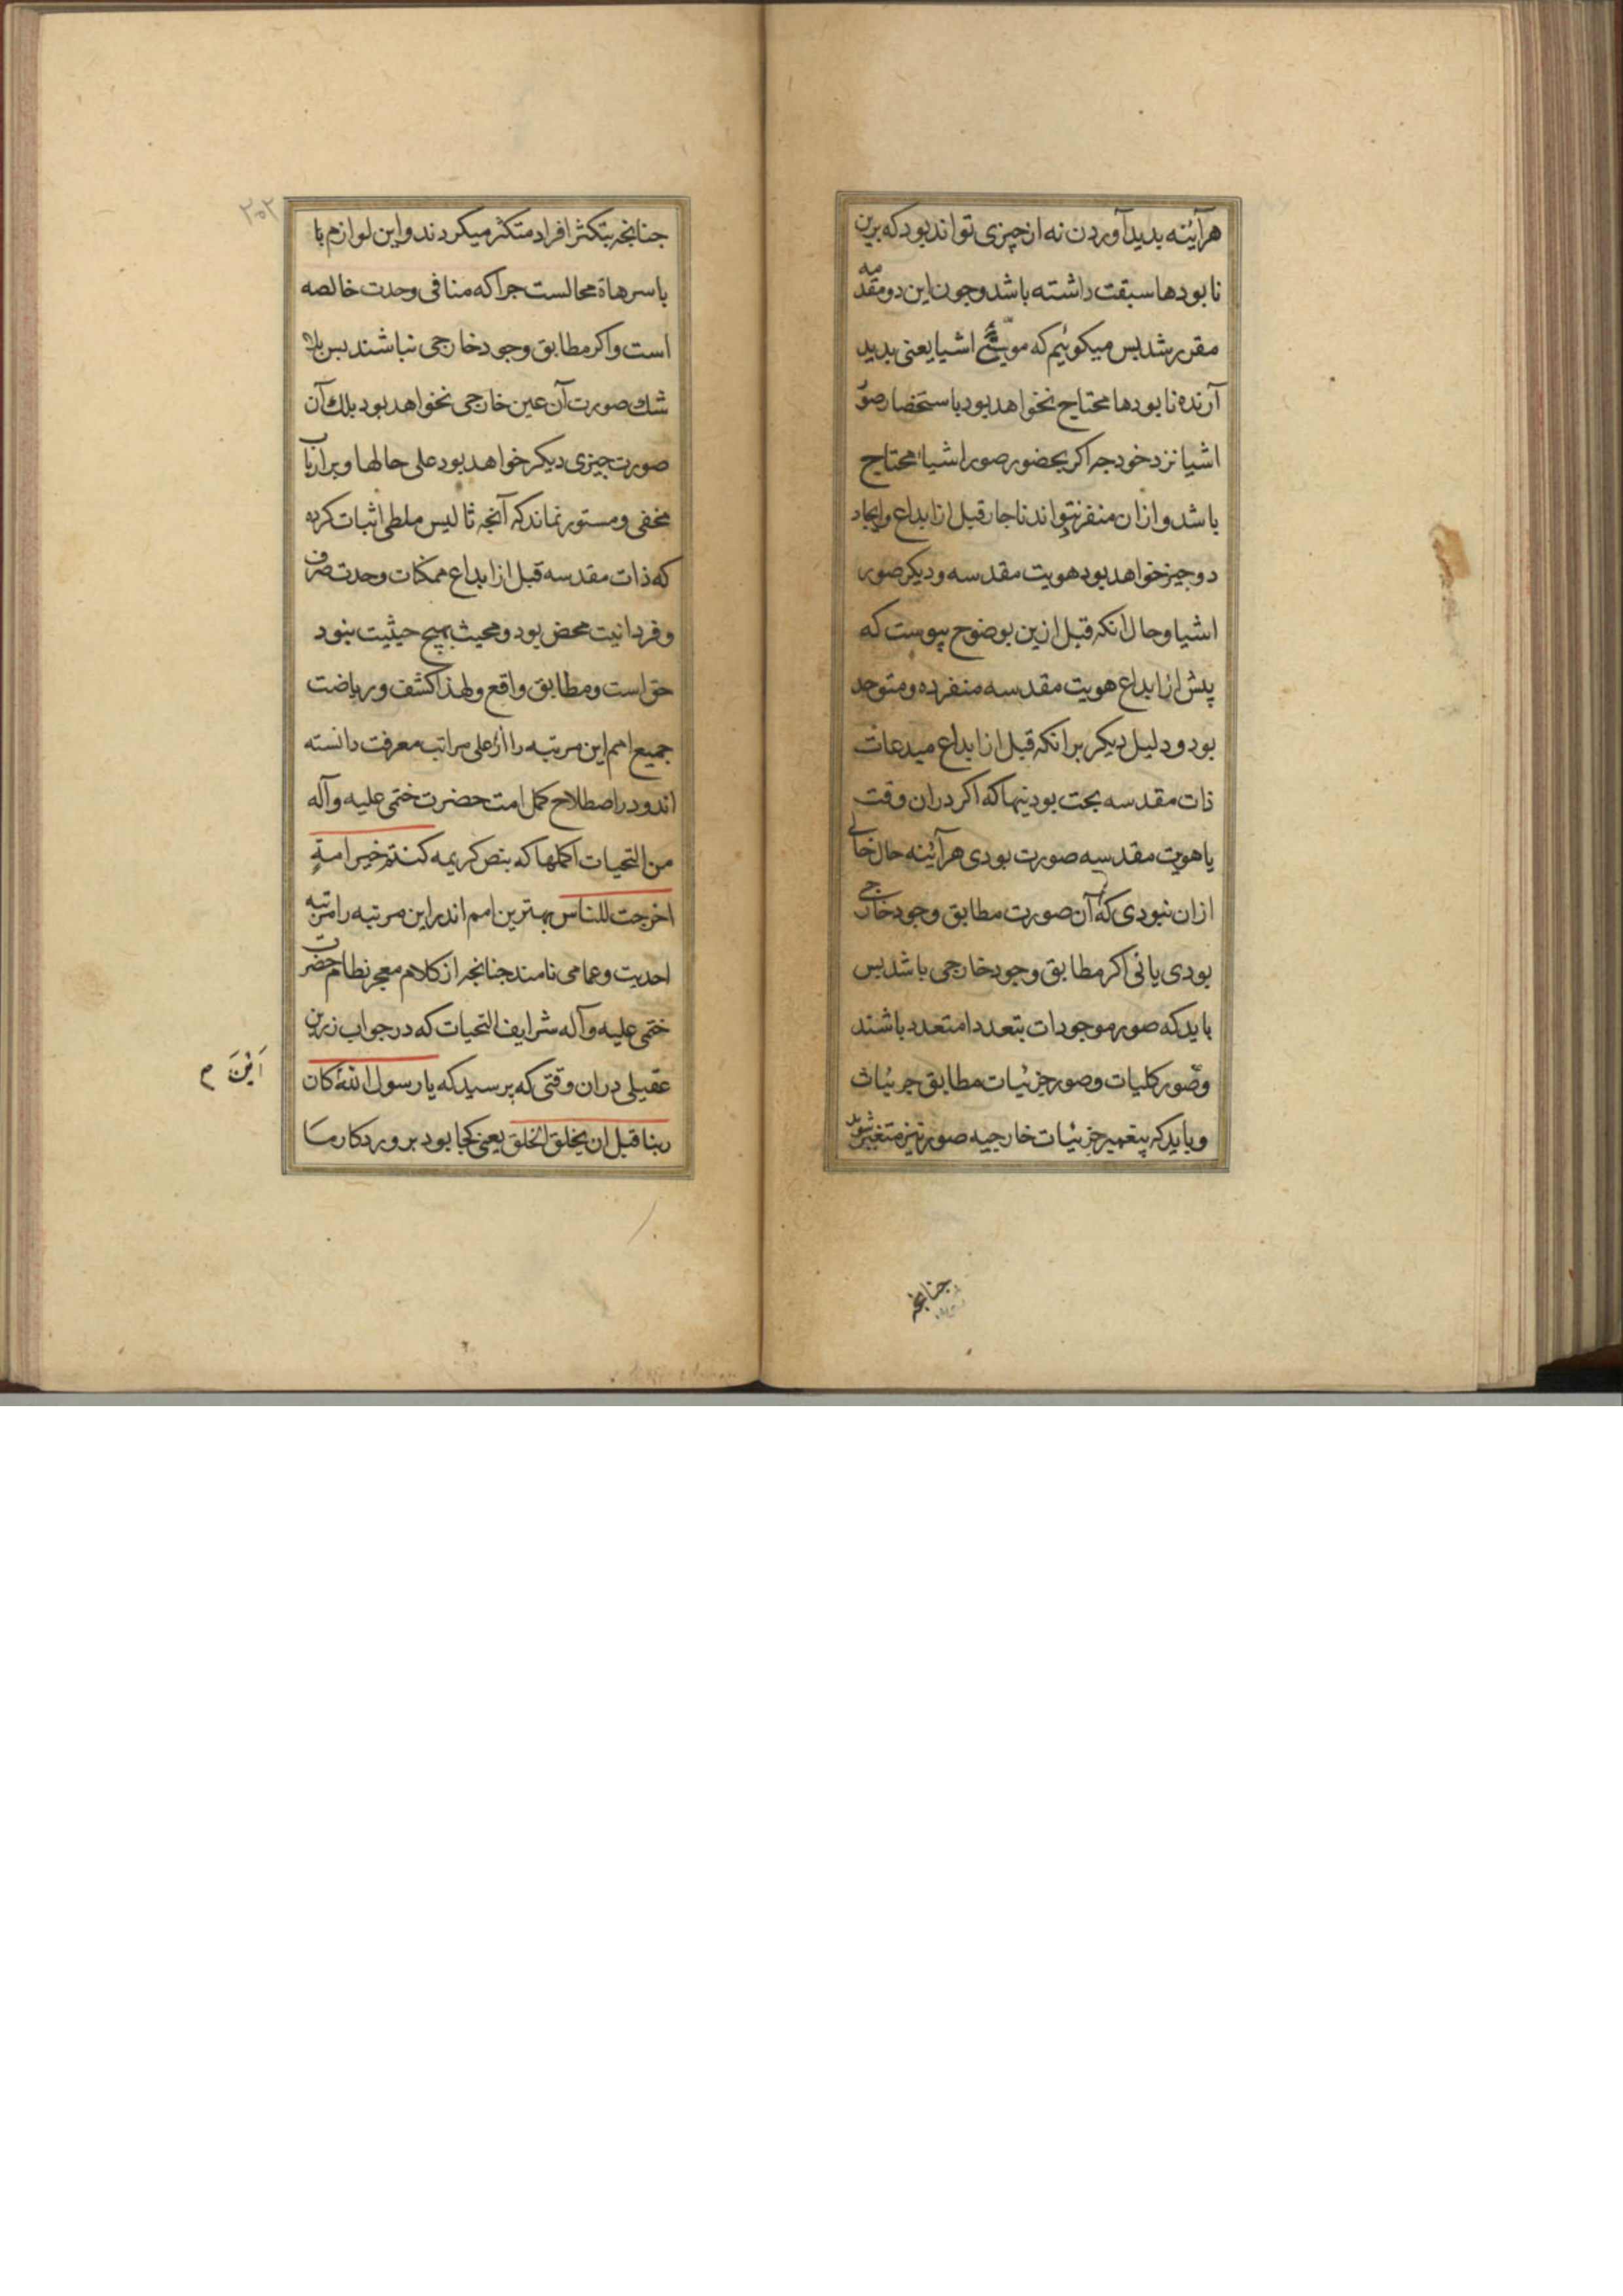 هرآینه بدید آوردن نه از چیزی تواند بود که برین
نابودها سبقت داشته باشد وجون این دو مقدمه
مقرر شد بس میکوئیم که اشیا یعنی بدید
آرنده نابودها محتاج نخواهد بود باستحضار صور
اشیا نزد خود جه اکر بحضور صور اشیا محتاج
باشد و ازان منفرد نتواند ناجار قبل از ابداع وایجاد
دو جیز خواهد بود هویت مقدسه و دیکر صور
اشیا وحال انکه قبل ازین بوضوح پیوست که
پیش از ابداع هویت مقدسه منفرده و متوحد
بود و دلیل دیکر برانکه قبل از ابداع مبدعات
ذات مقدسه بحت بود تنها که اکر دران وقت
با هویت مقدسه صورت بودی هرآئینه حال خالی
ازان نبودی که آن صورت مطابق وجود خارجی
بودی یا نی اکر مطابق وجود خارجی باشد بس
باید که صور موجودات بتعددا متعدد باشند
وصور کلیات وصور جزئیات مطابق جزئیات
و باید که بتغییر جزئیات خارجیه صور نیز متغیر شوند
جنانجه
۲۰۲
جنانجه بتکثر افراد متکثر میکردند واین لوازم با
باسرهاة محالست جرا که منافی وحدت خالصه
است واکر مطابق وجود خارجی نباشند بس بلا
شك صورت آن عین خارجی نخواهد بود بلك آن
صورت جیزی دیکر خواهد بود علی حالها و بر ارباب
مخفی و مستور نماند که آنجه ثالیس ملطی اثبات کرده
که ذات مقدسه قبل از ابداع ممکنات وحدت صرف
و فردانیت محض بود و محیث بهیج حیثیت نبود
حق است و مطابق واقع ولهذا کشف و ریاضت
جمیع امم این مرتبه را از اعلی مراتب معرفت دانسته
اند ودر اصطلاح کمل امت حضرت ختمی علیه وآله
من التحیات اکملها که بنص کریمه کنتم خیر امة
اخرجت للناس بهترین امم اند این مرتبه را مرتبه
احدیت وعمامی نامند جنانجه از کلام معجز نظام حضرت
ختمی علیه وآله شرایف التحیات که در جواب زرین
عقیلی دران وقتی که پرسید که یا رسول الله کان
اَیْنَ م
ربنا قبل ان یخلق الخلق یعنی کجا بود بروردکار ما